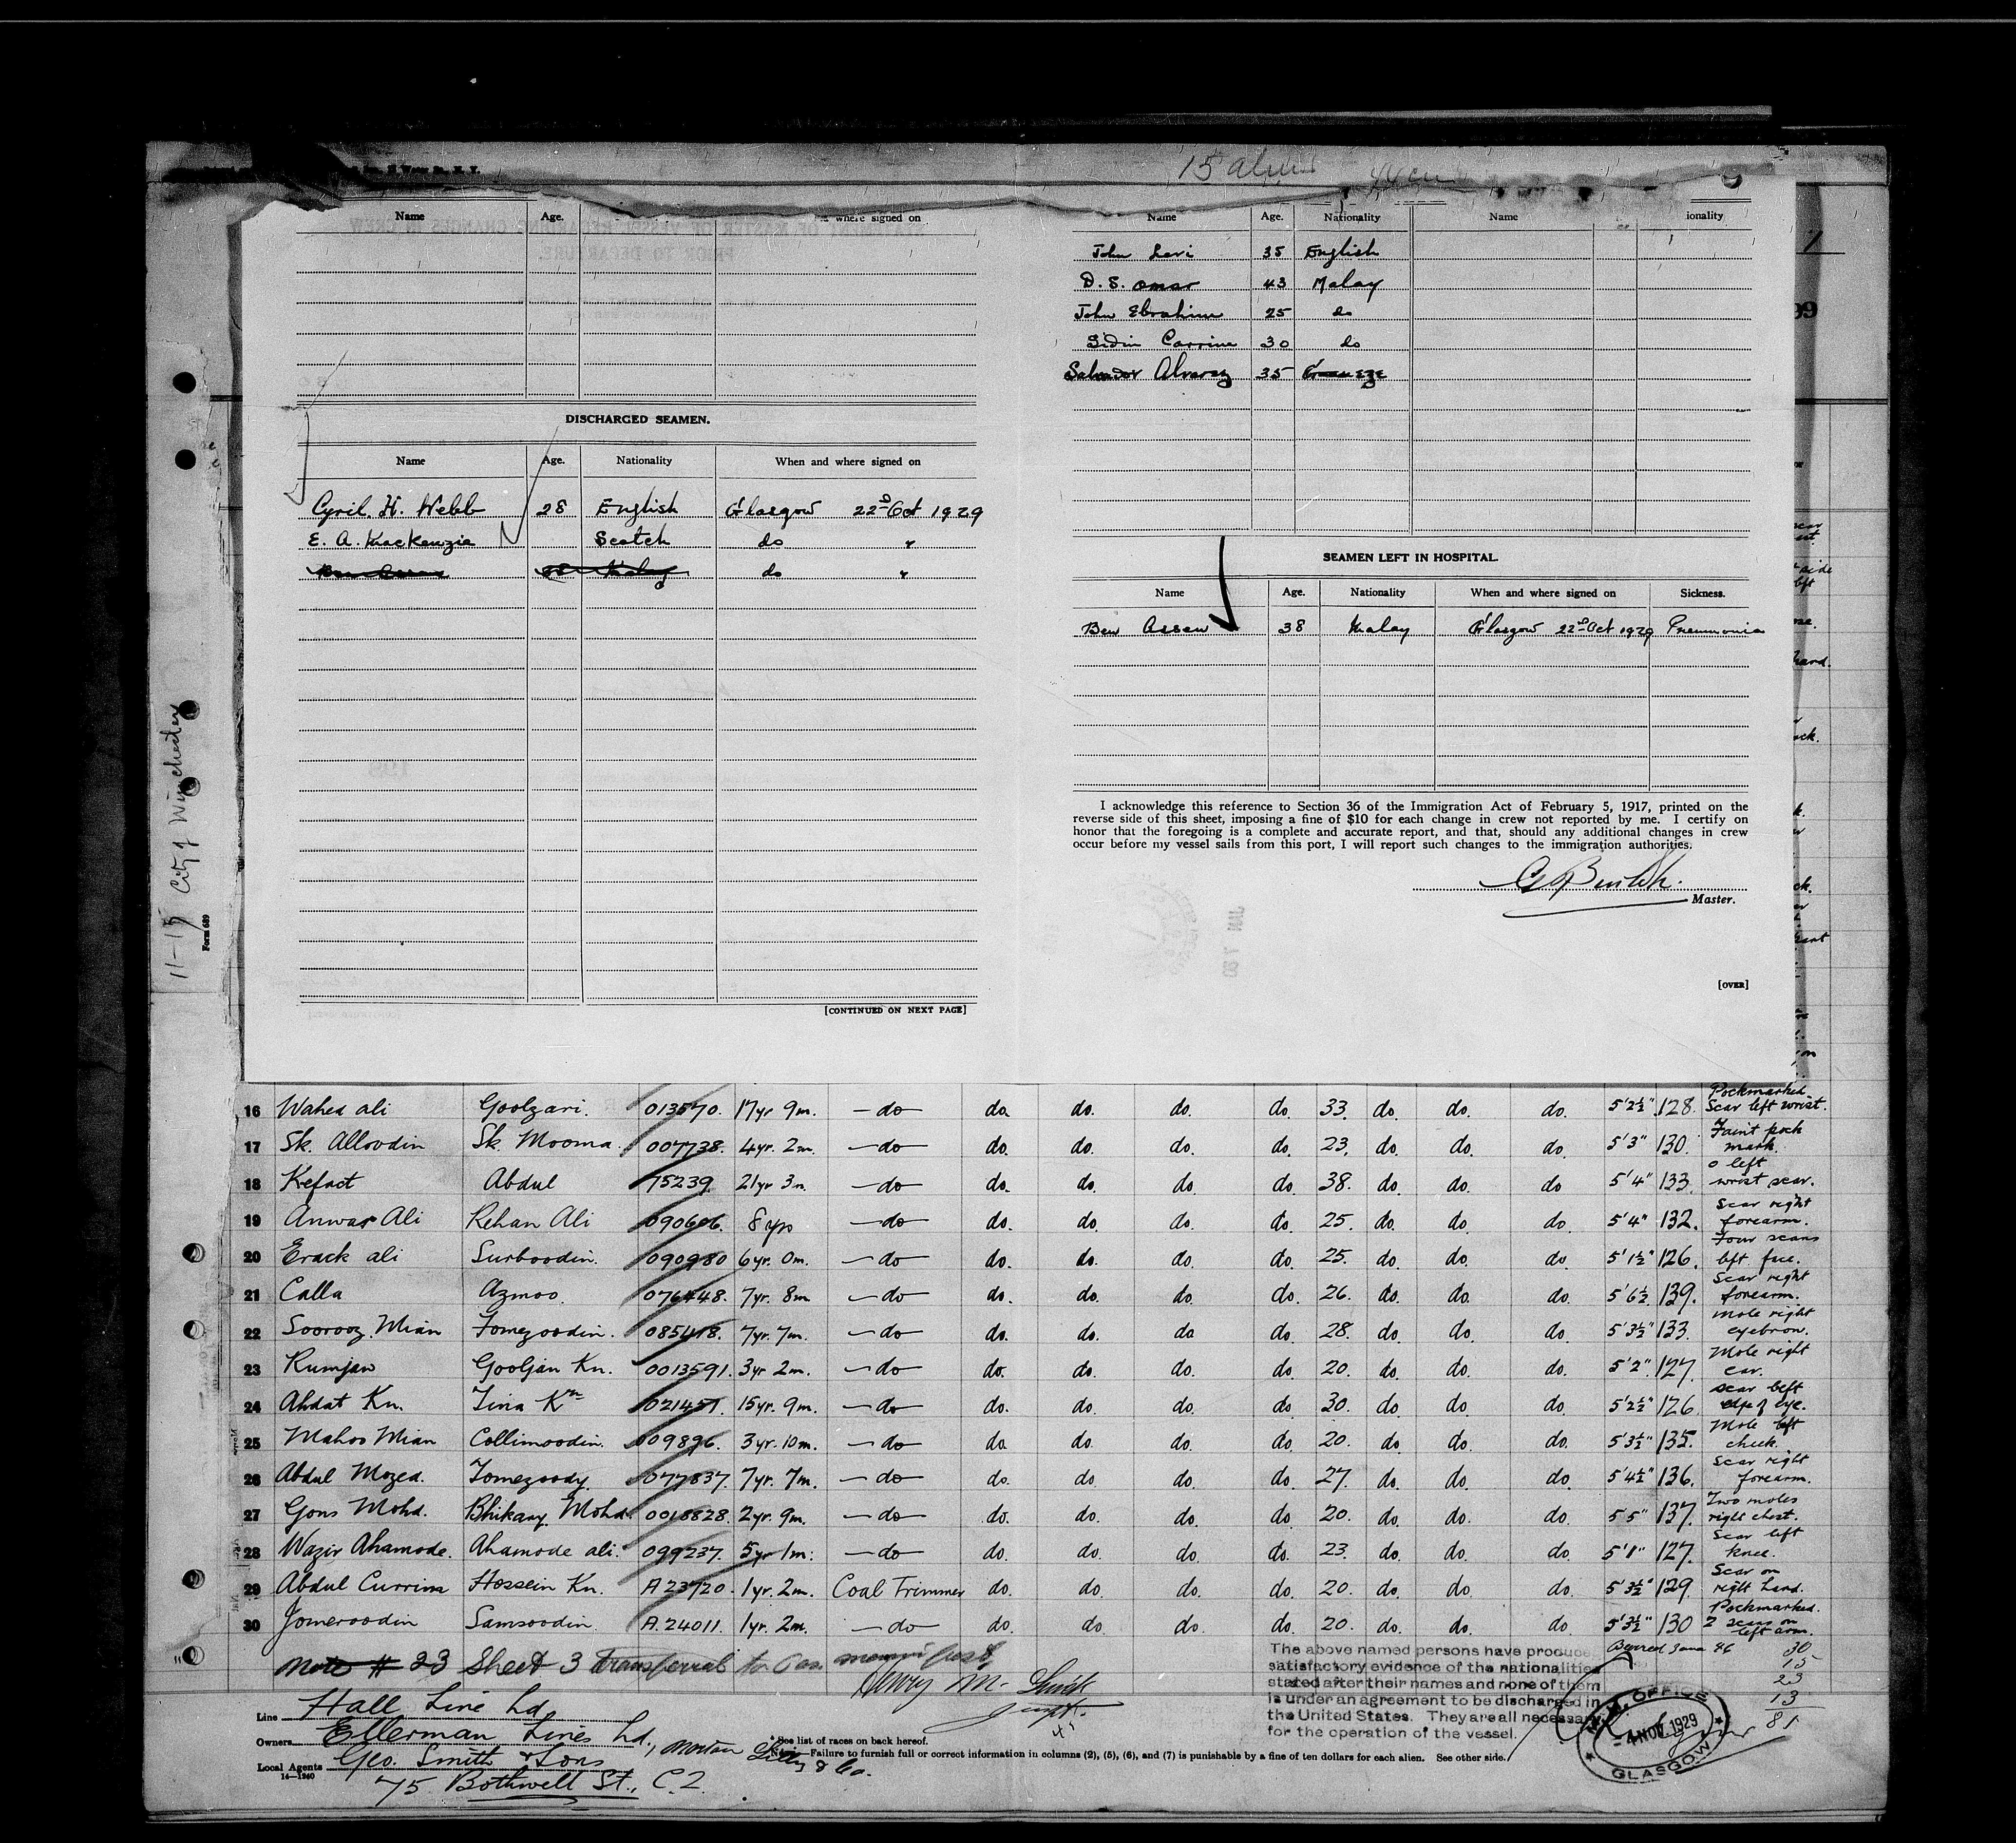 15 alien
Name Age. where signed on
DISCHARGED SEAMEN.
Name Age. Nationality When and where signed on
Cyril. H. Webb 28 English Glasgow 22nd Oct 1929
E. A. Mackenzie Scotch do "
do "
[CONTINUED ON NEXT PAGE]
Name Age. Nationality Name ionality
John Levi 35 English
D. S. Omar 43 Malay
John Ebrahim 25 do
Sidin Carrim 30 do
Salvador Alvarez 35
SEAMEN LEFT IN HOSPITAL.
Name Age. Nationality When and where signed on Sickness.
Ben Assan 38 Malay Glasgow 22nd Oct 1929 Pneumonia
I acknowledge this reference to Section 36 of the Immigration Act of February 5, 1917, printed on the
reverse side of this sheet, imposing a fine of $10 for each change in crew not reported by me. I certify on
honor that the foregoing is a complete and accurate report, and that, should any additional changes in crew
occur before my vessel sails from this port, I will report such changes to the immigration authorities.
Master.
[OVER]
11-15 City of Winchester
Form 689
16 Wahed ali Goolzari. 013570. 17yr 9m. —do— do. do. do. do. 33. do. do. do. 5'2½" 128. Pockmarked. Scar left wrist.
17 Sk. Alloodin Sk. Mooma. 007738. 4yr. 2m. —do— do. do. do. do. 23. do. do. do. 5'3" 130. Faint pock mark.
18 Kefact Abdul 75239. 21yr 3m. —do— do. do. do. do. 38. do. do. do 5'4" 133. left wrist scar.
19 Anwar Ali Rehan Ali 090606. 8 yrs —do— do. do. do. do. 25. do. do. do. 5'4" 132. Scar right forearm.
20 Erack ali Surboodin. 090980 6yr. 0m. —do— do. do. do. do. 25. do. do. do. 5'1½" 126. Four scars left face.
21 Calla Azmoo. 076448. 7yr. 8m —do— do. do. do. do. 26. do. do. do. 5'6½ 139. Scar right forearm.
22 Soorooz Mian Fomezoodin. 085418. 7yr. 7m. —do— do. do. do do. 28. do. do. do. 5'3½" 133. Mole right eyebrow.
23 Rumjan Gooljan Kn. 0013591. 3yr 2m. —do— do. do. do. do. 20. do. do. do. 5'2" 127. Mole right ear.
24 Ahdat Kn. Tina Kn 021451. 15yr. 9m. —do— do. do. do. do 30. do. do. do. 5'2½" 126. Scar left edge of eye.
25 Mahoo Mian Collimoodin. 009896. 3yr. 10m. —do— do. do. do. do. 20. do. do. do. 5'3½" 135. Mole left cheek.
26 Abdul Mozed. Fomezoody 077837. 7yr. 7m. —do— do. do. do. do. 27. do. do. do. 5'4½" 136. Scar right forearm.
27 Gons Mohd. Bhikary Mohd. 0018828. 2yr. 9m. —do— do. do. do. do. 20. do. do. do. 5'5" 137. Two moles right chest.
28 Wazir Ahamode. Ahamode ali. 099237. 5yr 1m. —do— do. do. do. do. 23. do. do. do 5'1" 127. Scar left knee.
29 Abdul Currim Hossein Kn. A 23720. 1yr. 2m. Coal Trimmer do. do. do. do. 20. do. do. do. 5'3½" 129. Scar on right hand.
30 Jomeroodin Samsoodin. A. 24011. 1yr. 2m. —do— do. do. do. do. 20. do. do. do. 5'3½" 130 Pockmarked. 2 scars on left arm.
Note # 23 Sheet 3 Transferred to Pas. manifest
Henry M.
The above named persons have produce
satisfactory evidence of the nationalities
stated after their names and none of them
is under an agreement to be discharged in
the United States. They are all necessary
for the operation of the vessel.
30
15
23
13
81
OFFICE
4 NOV. 1929
GLASGOW
Line Hall Line Ld.
Owners Ellerman Lines Ld.,
Local Agents Geo. Smith & Sons
75 Bothwell St., C.2.
14—1240
* See list of races on back hereof.
Failure to furnish full or correct information in columns (2), (5), (6), and (7) is punishable by a fine of ten dollars for each alien. See other side.